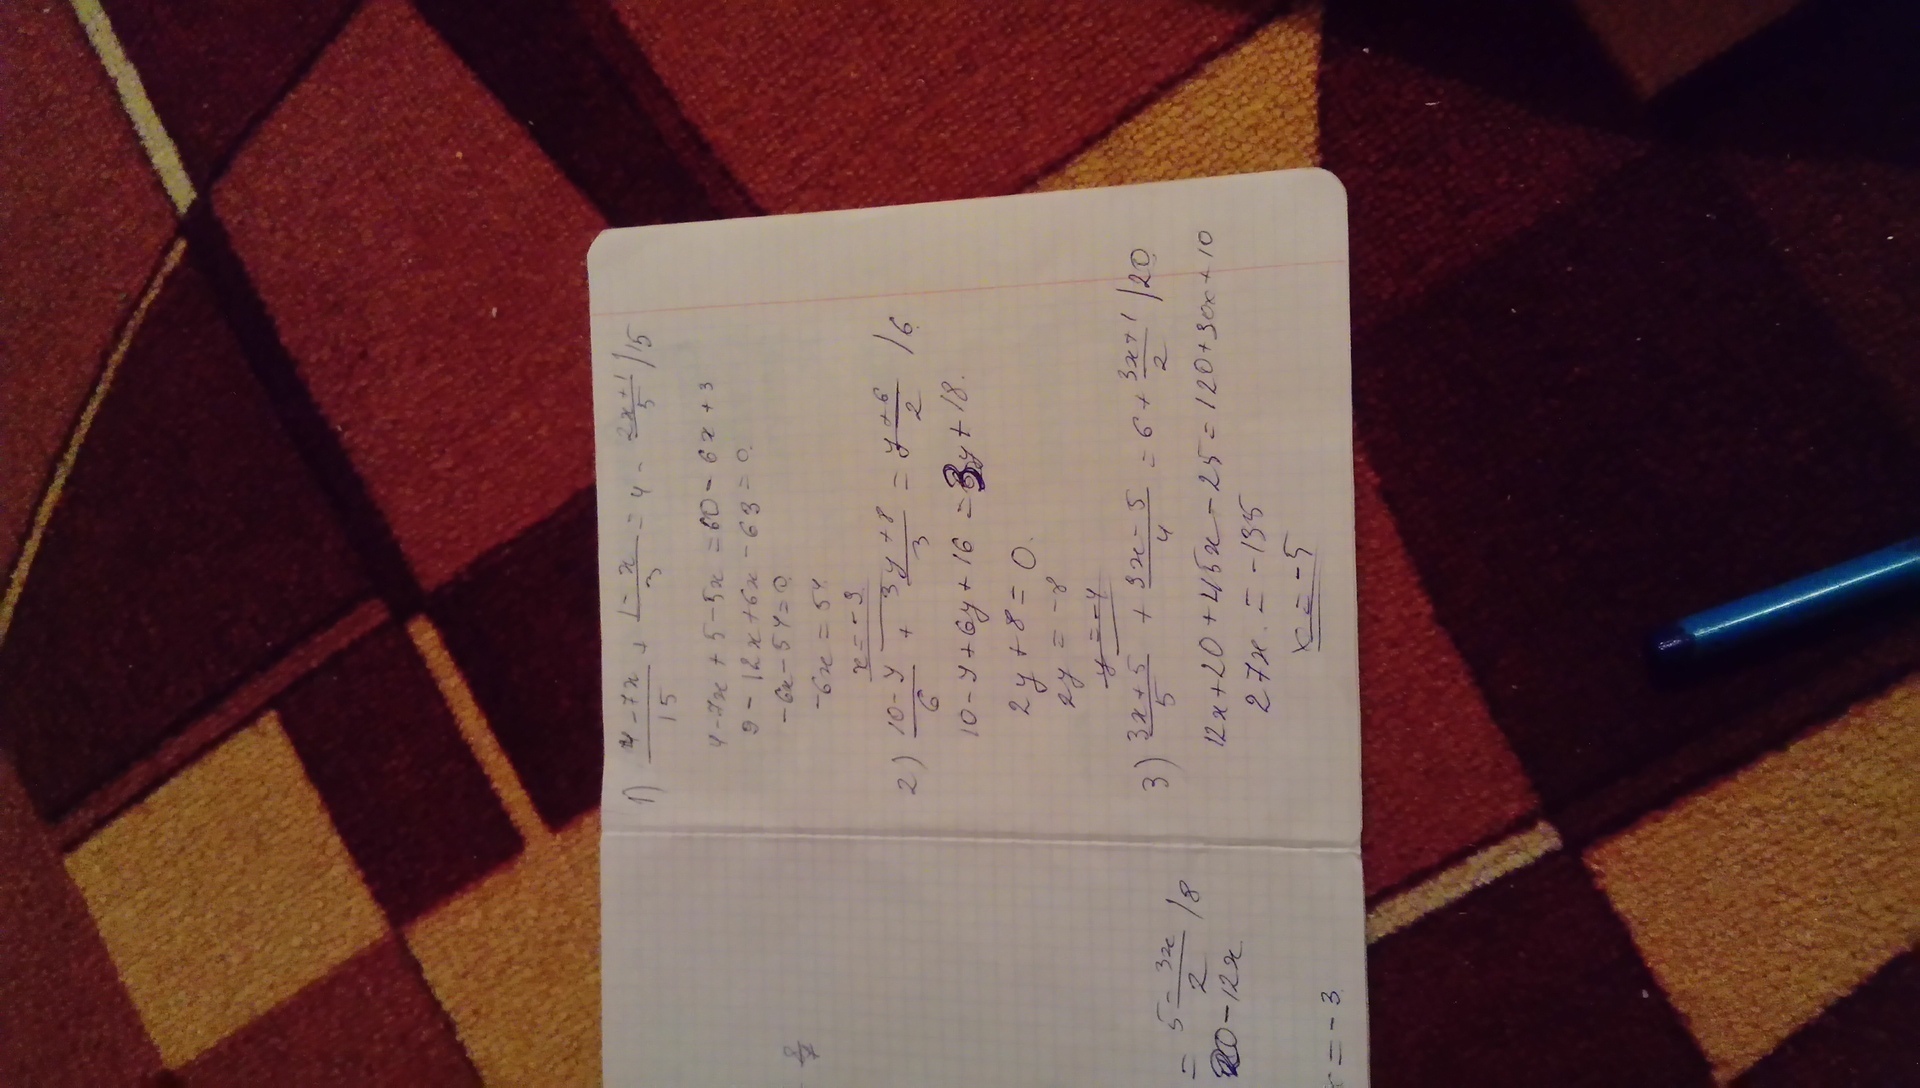 1) (4-7x)/15 + (1-x)/3 = 4 - (2x+1)/5 /15
4-7x+5-5x=60-6x+3
9-12x+6x-63=0.
-6x-54=0.
-6x=54.
x=-9
2) (10-y)/6 + (3y+8)/3 = (y+6)/2 /6
10-y+6y+16=3y+18.
2y+8=0.
2y=-8
y=-4
3) (3x+5)/5 + (3x-5)/4 = 6+ (3x+1)/2 /20
12x+20+45x-25=120+30x+10
27x.=-135
x=-5
= 5- 3x/2 /8
-12x
=-3